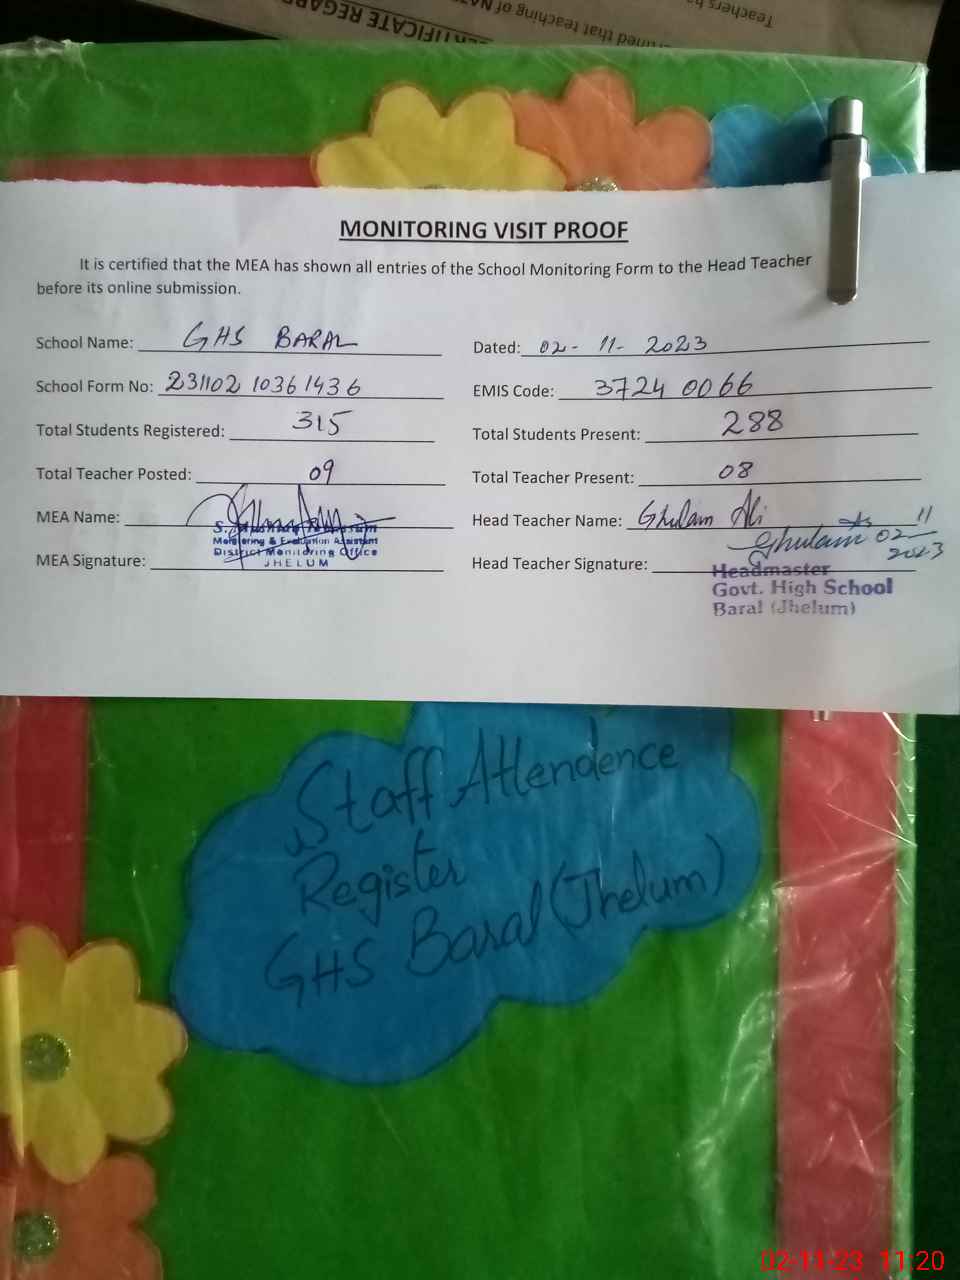 Teachers
that teaching of NA
CERTIFICATE REGARD
MONITORING VISIT PROOF
It is certified that the MEA has shown all entries of the School Monitoring Form to the Head Teacher
before its online submission.
School Name: GHS BARAL
Dated: 02-11-2023
School Form No: 231102 10361436
EMIS Code: 3724 0066
Total Students Registered: 315
Total Students Present: 288
Total Teacher Posted: 09
Total Teacher Present: 08
MEA Name:
Head Teacher Name: Ghulam Ali
Monitoring & Evaluation Assistant
District Monitoring Office
JHELUM
MEA Signature:
Head Teacher Signature: Ghulam 02/11
2023
Headmaster
Govt. High School
Baral (Jhelum)
Staff Attendence
Register
GHS Baral (Jhelum)
02-11-23 11:20